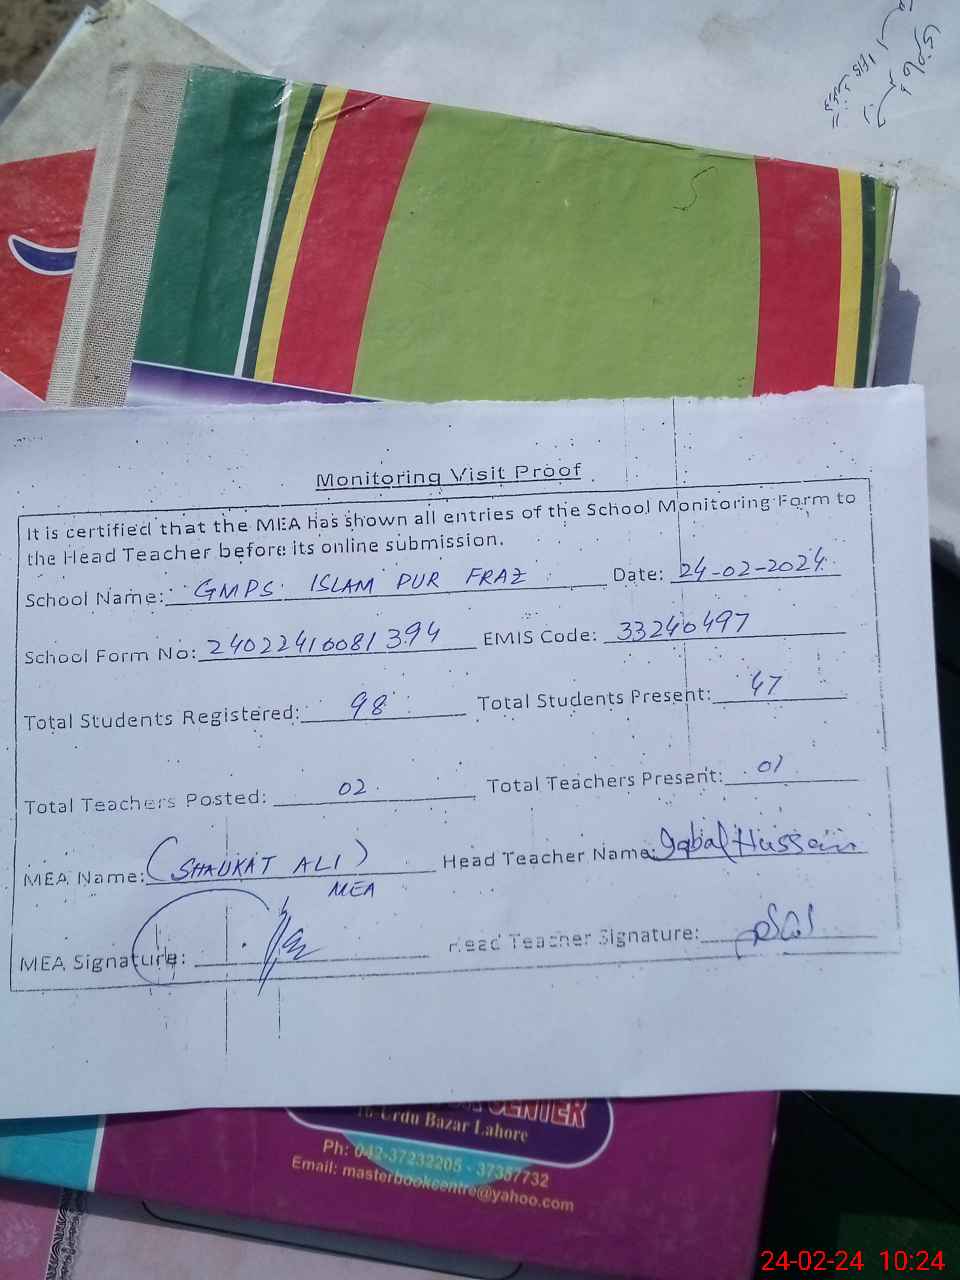 Monitoring Visit Proof
It is certified that the MEA has shown all entries of the School Monitoring Form to
the Head Teacher before its online submission.
School Name: GMPS ISLAM PUR FRAZ Date: 24-02-2024
School Form No: 24022410081394 EMIS Code: 33240497
Total Students Registered: 98 Total Students Present: 47
Total Teachers Posted: 02 Total Teachers Present: 01
MEA Name: (SHAUKAT ALI) Head Teacher Name: Iqbal Hussain
MEA
MEA Signature: Head Teacher Signature:
CENTER
Urdu Bazar Lahore
Ph: 042-37232205 - 37357732
Email: masterbookcentre@yahoo.com
24-02-24 10:24